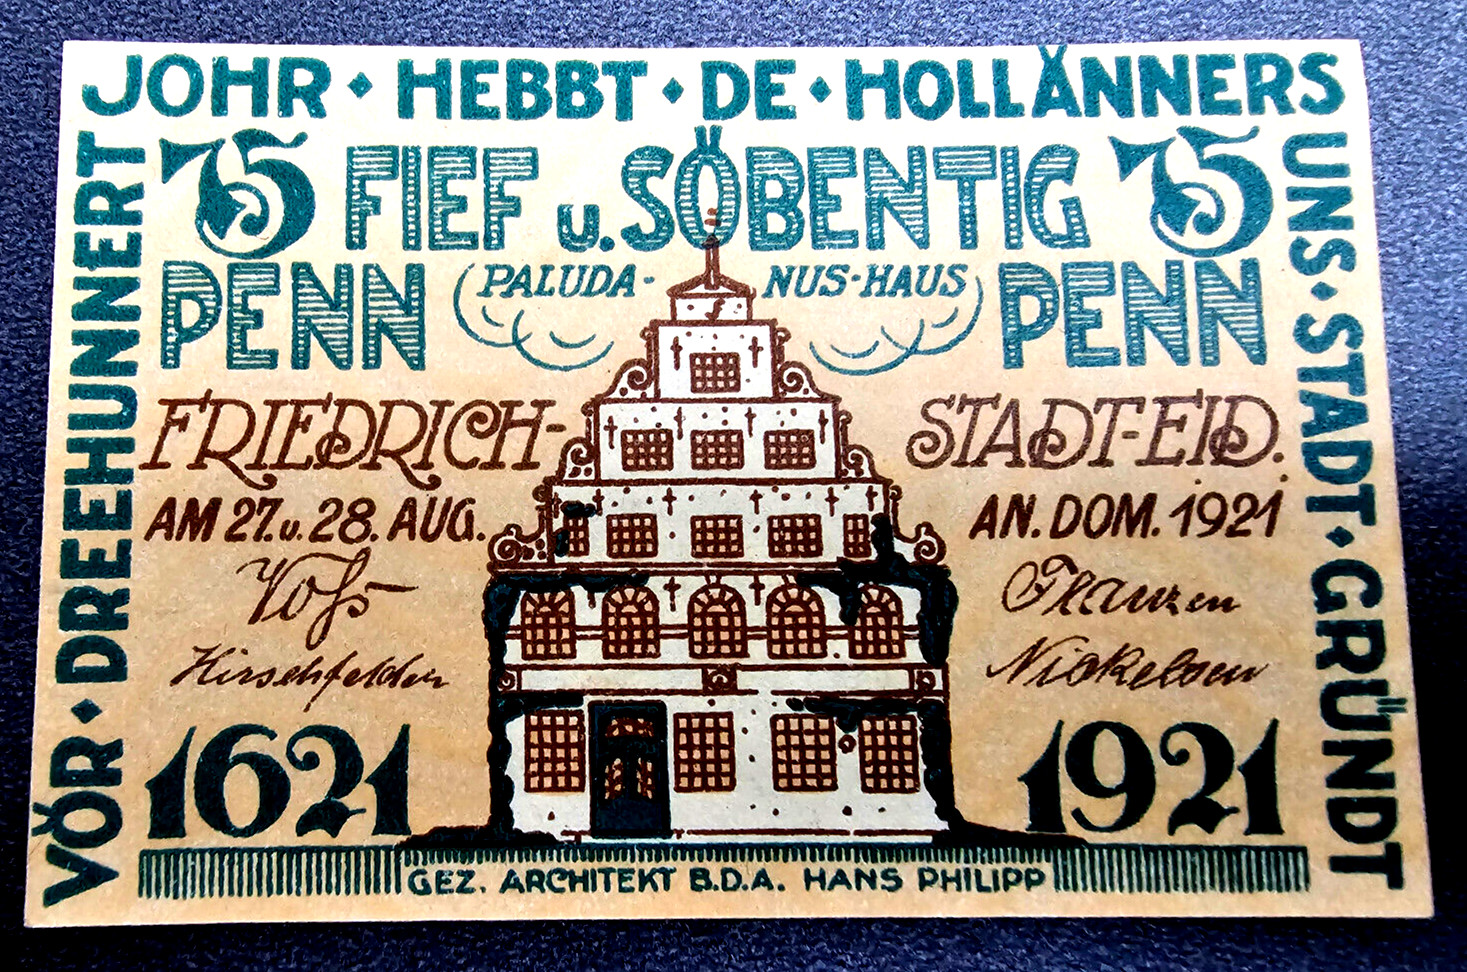 VÖR · DREEHUNNERT
JOHR · HEBBT · DE · HOLLÄNNERS
UNS · STADT · GRÜNDT
75 FIEF u. SÖBENTIG 75
PENN PENN
PALUDA- NUS-HAUS
FRIEDRICH- STADT-EID.
AM 27. u. 28. AUG. AN. DOM. 1921
Voß
Hirschfelder
1621 1921
GEZ. ARCHITEKT B.D.A. HANS PHILIPP